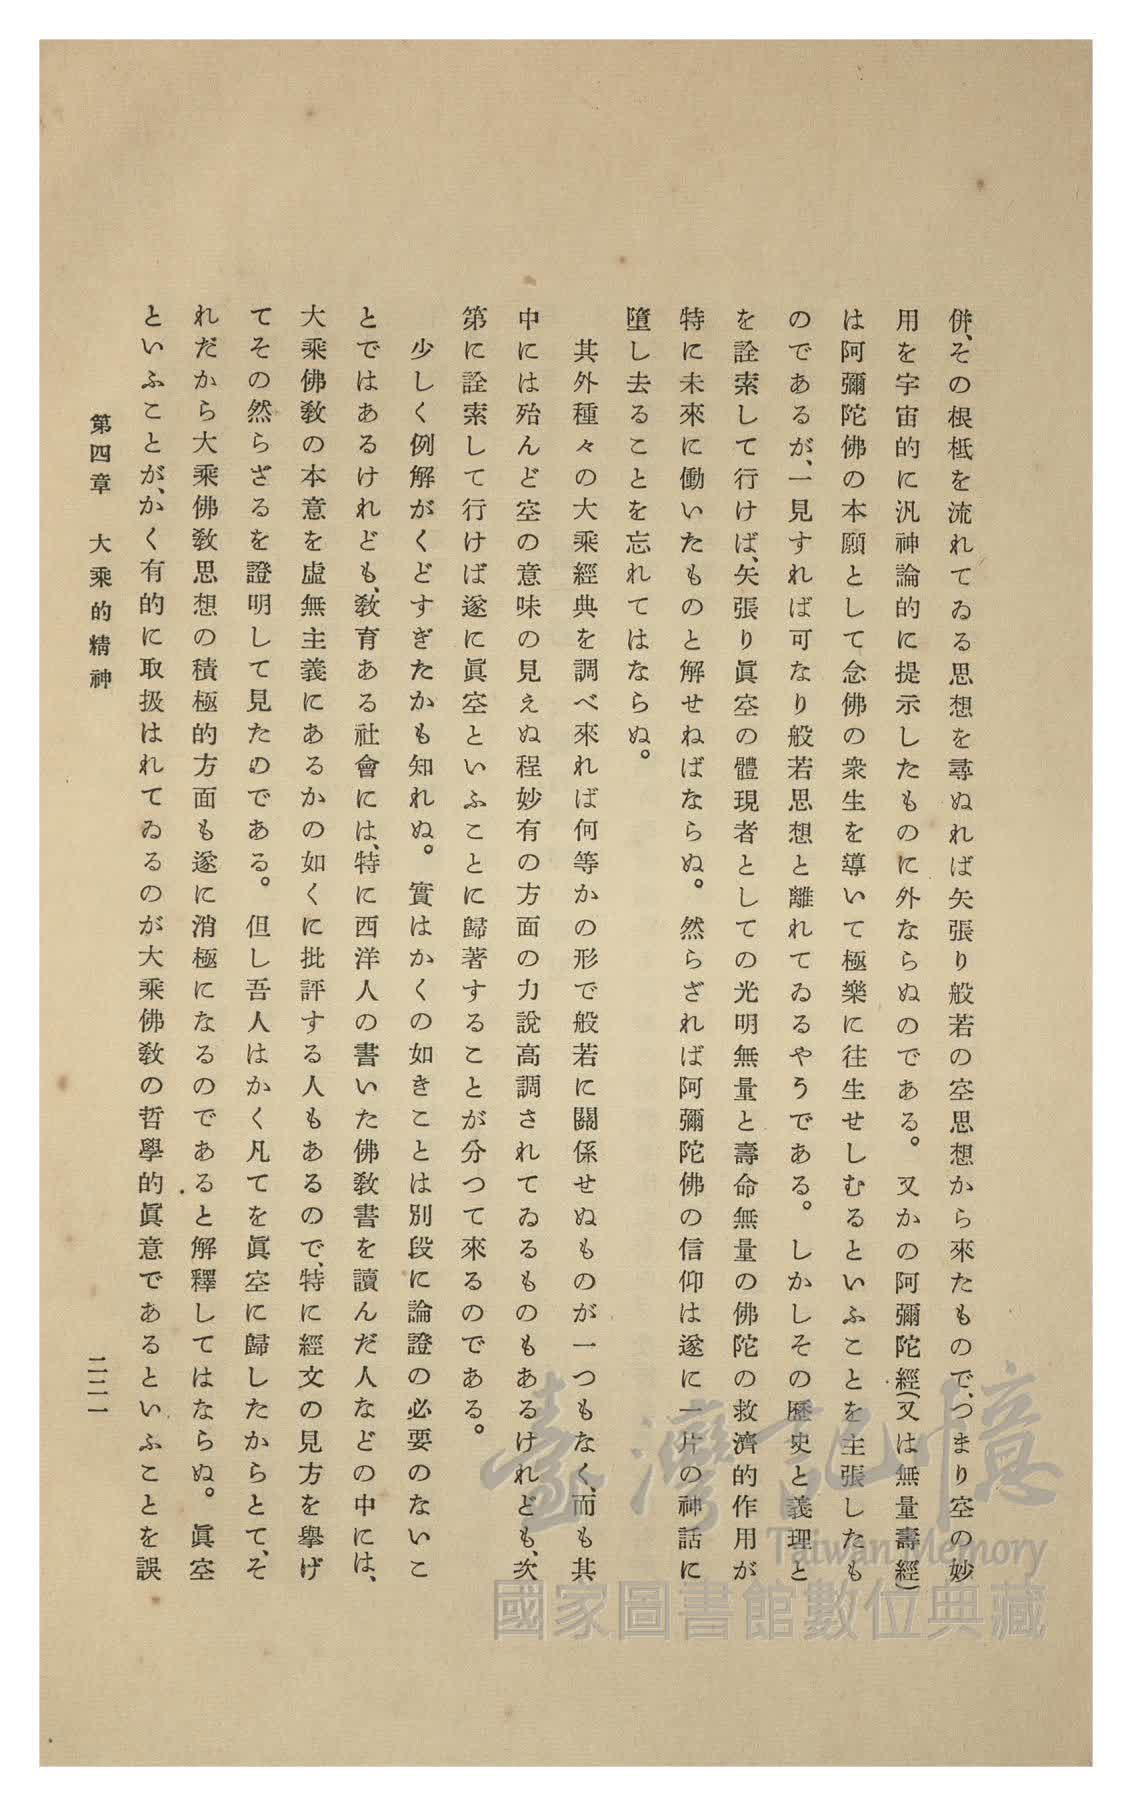 併、その根柢を流れてゐる思想を尋ぬれば矢張り般若の空思想から來たもので、つまり空の妙
用を宇宙的に汎神論的に提示したものに外ならぬのである。又かの阿彌陀經(又は無量壽經)
は阿彌陀佛の本願として念佛の衆生を導いて極樂に往生せしむるといふことを主張したも
のであるが、一見すれば可なり般若思想と離れてゐるやうである。しかしその歷史と義理と
を詮索して行けば、矢張り眞空の體現者としての光明無量と壽命無量の佛陀の救濟的作用が
特に未來に働いたものと解せねばならぬ。然らざれば阿彌陀佛の信仰は遂に一片の神話に
墮し去ることを忘れてはならぬ。
其外種々の大乘經典を調べ來れば何等かの形で般若に關係せぬものが一つもなく、而も其
中には殆んど空の意味の見えぬ程妙有の方面の力說高調されてゐるものもあるけれども、次
第に詮索して行けば遂に眞空といふことに歸著することが分つて來るのである。
少しく例解がくどすぎたかも知れぬ。實はかくの如きことは別段に論證の必要のないこ
とではあるけれども、敎育ある社會には、特に西洋人の書いた佛敎書を讀んだ人などの中には、
大乘佛敎の本意を虛無主義にあるかの如くに批評する人もあるので、特に經文の見方を擧げ
てその然らざるを證明して見たのである。但し吾人はかく凡てを眞空に歸したからとて、そ
れだから大乘佛敎思想の積極的方面も遂に消極になるのであると解釋してはならぬ。眞空
といふことが、かく有的に取扱はれてゐるのが大乘佛敎の哲學的眞意であるといふことを誤
第四章 大乘的精神
二二一
臺灣記憶
Taiwan Memory
國家圖書館數位典藏